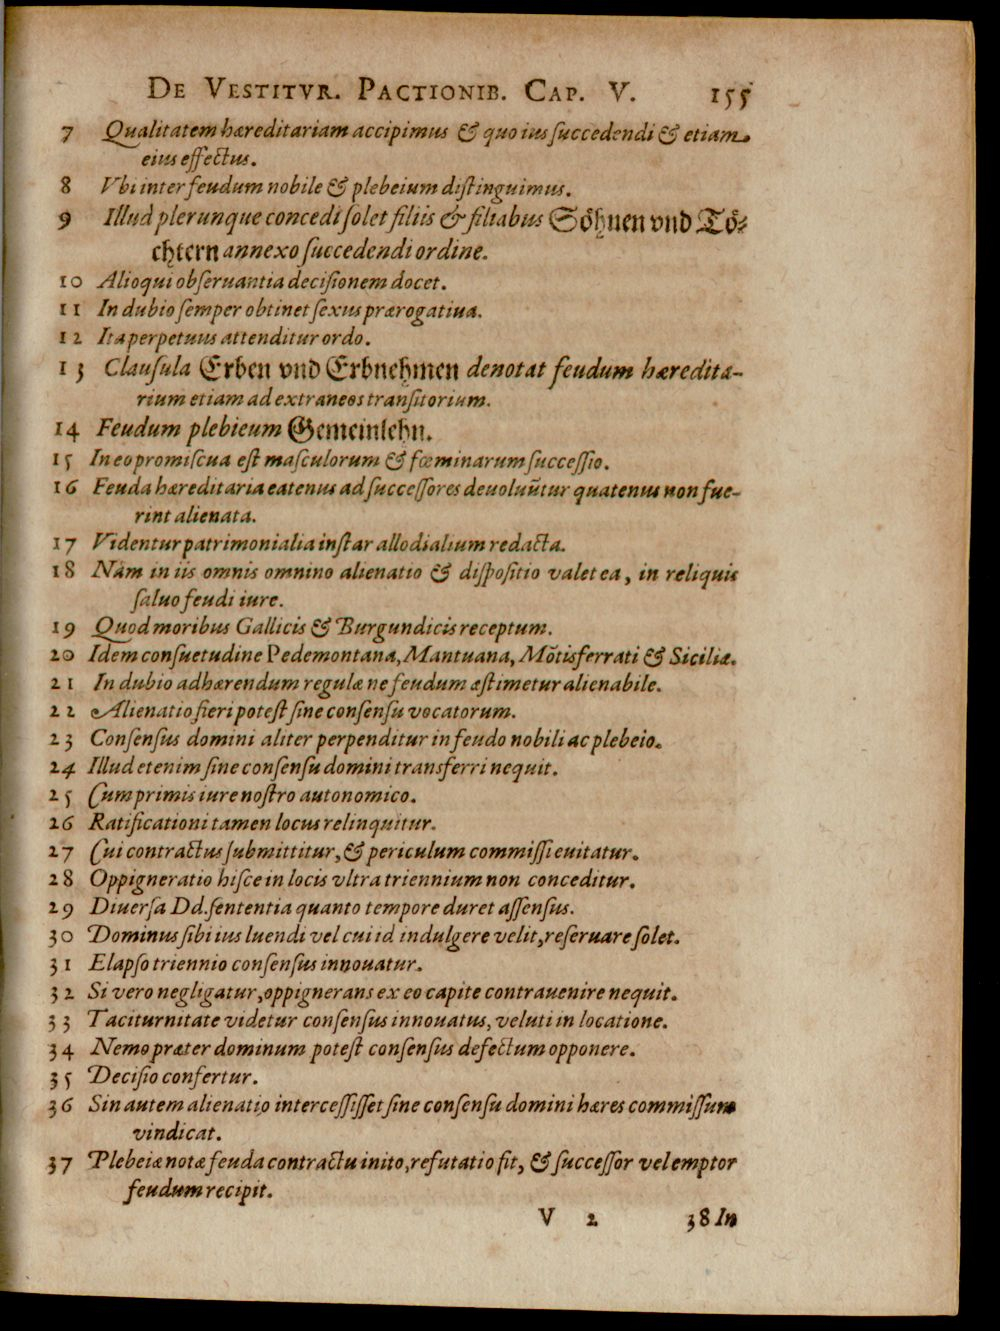 De Vestitvr. Pactionib. Cap. V. 155
7 Qualitatem hæreditariam accipimus & quo ius ſuccedendi & etiam
eius effectus.
8 Vbi inter feudum nobile & plebeium diſtinguimus.
9 Illud plerunque concedi ſolet filiis & filiabus Söhnen vnd Tö⸗
chtern annexo ſuccedendi ordine.
10 Alioqui obſeruantia deciſionem docet.
11 In dubio ſemper obtinet ſexus prærogatiua.
12 Ita perpetuus attenditur ordo.
13 Clauſula Erben vnd Erbnehmen denotat feudum hæredita-
rium etiam ad extraneos tranſitorium.
14 Feudum plebieum Gemeinlehn.
15 In eo promiſcua eſt maſculorum & fœminarum ſucceſſio.
16 Feuda hæreditaria eatenus ad ſucceſſores deuoluūtur quatenus non fue-
rint alienata.
17 Videntur patrimonialia inſtar allodialium redacta.
18 Nam in iis omnis omnino alienatio & diſpoſitio valet ea, in reliquis
ſaluo feudi iure.
19 Quod moribus Gallicis & Burgundicis receptum.
20 Idem conſuetudine Pedemontana, Mantuana, Mōtisferrati & Siciliæ.
21 In dubio adhærendum regulæ ne feudum æſtimetur alienabile.
22 Alienatio fieri poteſt ſine conſenſu vocatorum.
23 Conſenſus domini aliter perpenditur in feudo nobili ac plebeio.
24 Illud etenim ſine conſenſu domini transferri nequit.
25 Cum primis iure noſtro autonomico.
26 Ratificationi tamen locus relinquitur.
27 Cui contractus ſubmittitur, & periculum commiſſi euitatur.
28 Oppigneratio hiſce in locis vltra triennium non conceditur.
29 Diuerſa Dd. ſententia quanto tempore duret aſſenſus.
30 Dominus ſibi ius luendi vel cui id indulgere velit, reſeruare ſolet.
31 Elapſo triennio conſenſus innouatur.
32 Si vero negligatur, oppignerans ex eo capite contrauenire nequit.
33 Taciturnitate videtur conſenſus innouatus, veluti in locatione.
34 Nemo præter dominum poteſt conſenſus defectum opponere.
35 Deciſio confertur.
36 Sin autem alienatio interceſſiſſet ſine conſenſu domini hæres commiſſum
vindicat.
37 Plebeiæ notæ feuda contractu inito, refutatio fit, & ſucceſſor vel emptor
feudum recipit.
V 2 38 In